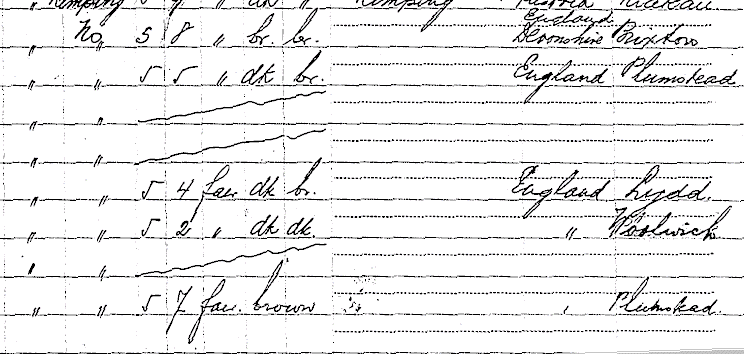 " " 5 " dk " 
England
" No 5 8 " br. br. Devonshire Brixton
" " 5 5 " dk br. England Plumstead
" "
" "
" " 5 4 fair dk br. England Lydd.
" " 5 2 " dk dk. " Woolwich
" "
" " 5 7 fair. brown " Plumstead.